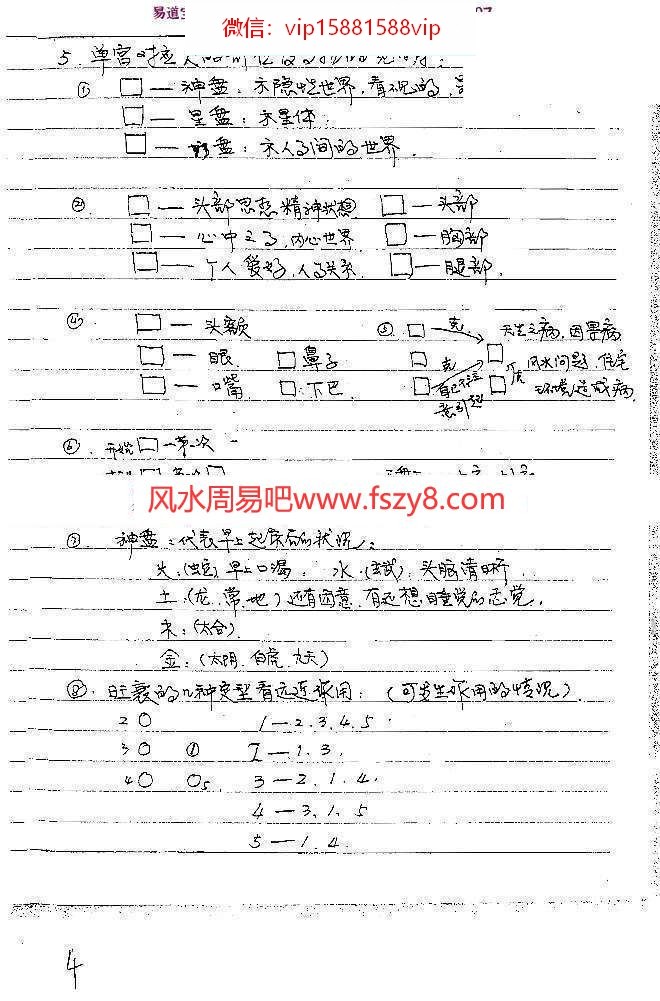 易道
微信：vip15881588vip
5. 单宫对应人
① □—神盘：示隐性世界，看不见的，
□—星盘：示星体．
□— 盘：示人与人间的世界．
② □—头部思想 精神状态 □—头部
□—心中之事，内心世界 □—胸部
□—个人爱好，人事关系． □—腿部．
④ □—头额 ⑤ □—克 天生之病，因果病
□—眼 □鼻子 □ 克 □ 风水问题，住宅
□—口嘴 □：下巴 □ 自己不注意引起 □ 环境造成病．
⑥．开始□—第一次
风水周易吧www.fszy8.com
⑦ 神盘：代表早上起床后的状况：
火：(蛇)早上口渴， 水：(玄武)：头脑清晰．
土：(龙．常．地)还有困意，有还想睡觉的感觉．
木：(六合)．
金：(太阴．白虎．九天)
⑧．旺衰的几种类型看远近作用：(可发生作用的情况)．
2○ 1—2.3.4.5
3○ ① 2—1.3.
4○ ○5 3—2.1.4.
4—3.1.5
5—1.4.
4